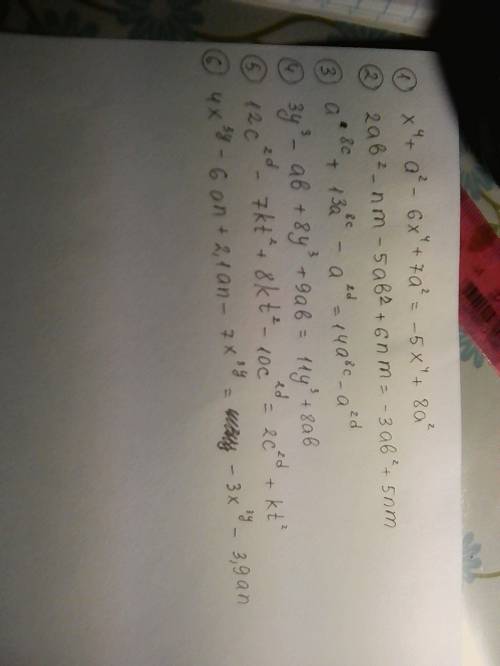 ① x⁴ + a² - 6x⁴ + 7a² = -5x⁴ + 8a²
② 2ab² - nm - 5ab² + 6nm = -3ab² + 5nm
③ a⁸ᶜ + 13a⁸ᶜ - a²ᵈ = 14a⁸ᶜ - a²ᵈ
④ 3y³ - ab + 8y³ + 9ab = 11y³ + 8ab
⑤ 12c²ᵈ - 7kt² + 8kt² - 10c²ᵈ = 2c²ᵈ + kt²
⑥ 4x³ʸ - 6an + 2,1an - 7x³ʸ = -3x³ʸ - 3,9an